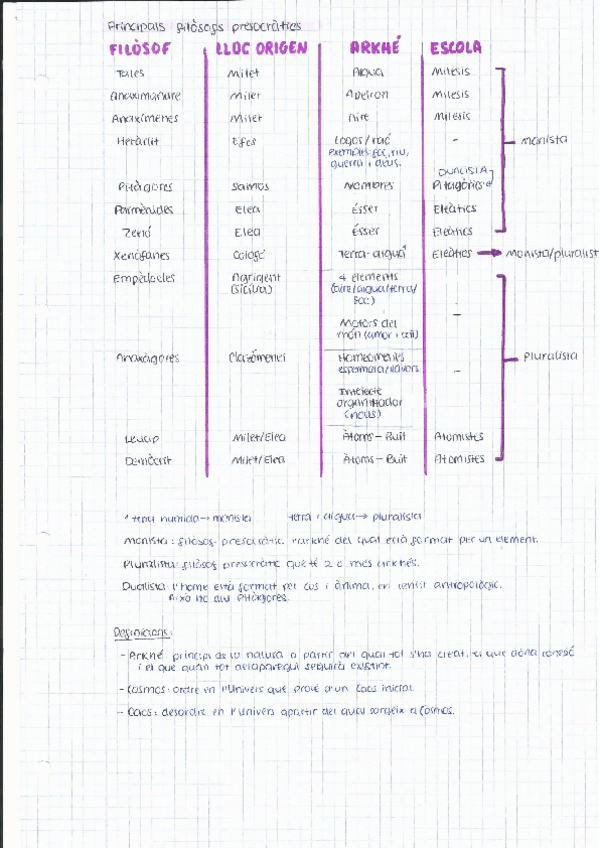 Principals filòsofs presocràtics
FILÒSOF LLOC ORIGEN ARKHÉ ESCOLA
Tales Milet Aigua Milesis
Anaximandre Milet Apeiron Milesis
Anaxímenes Milet Aire Milesis
Heràclit Efes Logos/raó -
exemples: foc, riu,
guerra i deus.
monista
DUALISTA
Pitàgores Samos Nombres Pitagòrics
Parmènides Elea ésser Eleàtics
Zenó Elea ésser Eleàtics
Xenòfanes Colofó Terra-aigua* Eleàtics → Monista/pluralist
Empèdocles Agrigent 4 elements
(Sicília) (aire/aigua/terra/
foc)
-
Motors del
món (amor i odi)
Anaxàgores Clazòmenes Homeomeries pluralista
esperma/llavors
-
Intel·lecte
organitzador
(nous)
Leucip Milet/Elea Àtoms-Buit Atomistes
Demòcrit Milet/Elea Àtoms-Buit Atomistes
* terra humida → monista terra i aigua → pluralista
Monista: filòsof presocràtic l'arkhé del qual està format per un element.
Pluralista: filòsof presocràtic que té 2 o més arkhés.
Dualista: l'home està format per cos i ànima, en sentit antropològic.
Això ho diu Pitàgores.
Definicions:
- Arkhé principi de la natura a partir del qual tot s'ha creat, el que dóna cohesió
i el que quan tot desaparegui seguirà existint.
- Cosmos: ordre en l'Univers que prové d'un Caos inicial.
- Caos: desordre en l'Univers apartir del qual sorgeix el Cosmos.